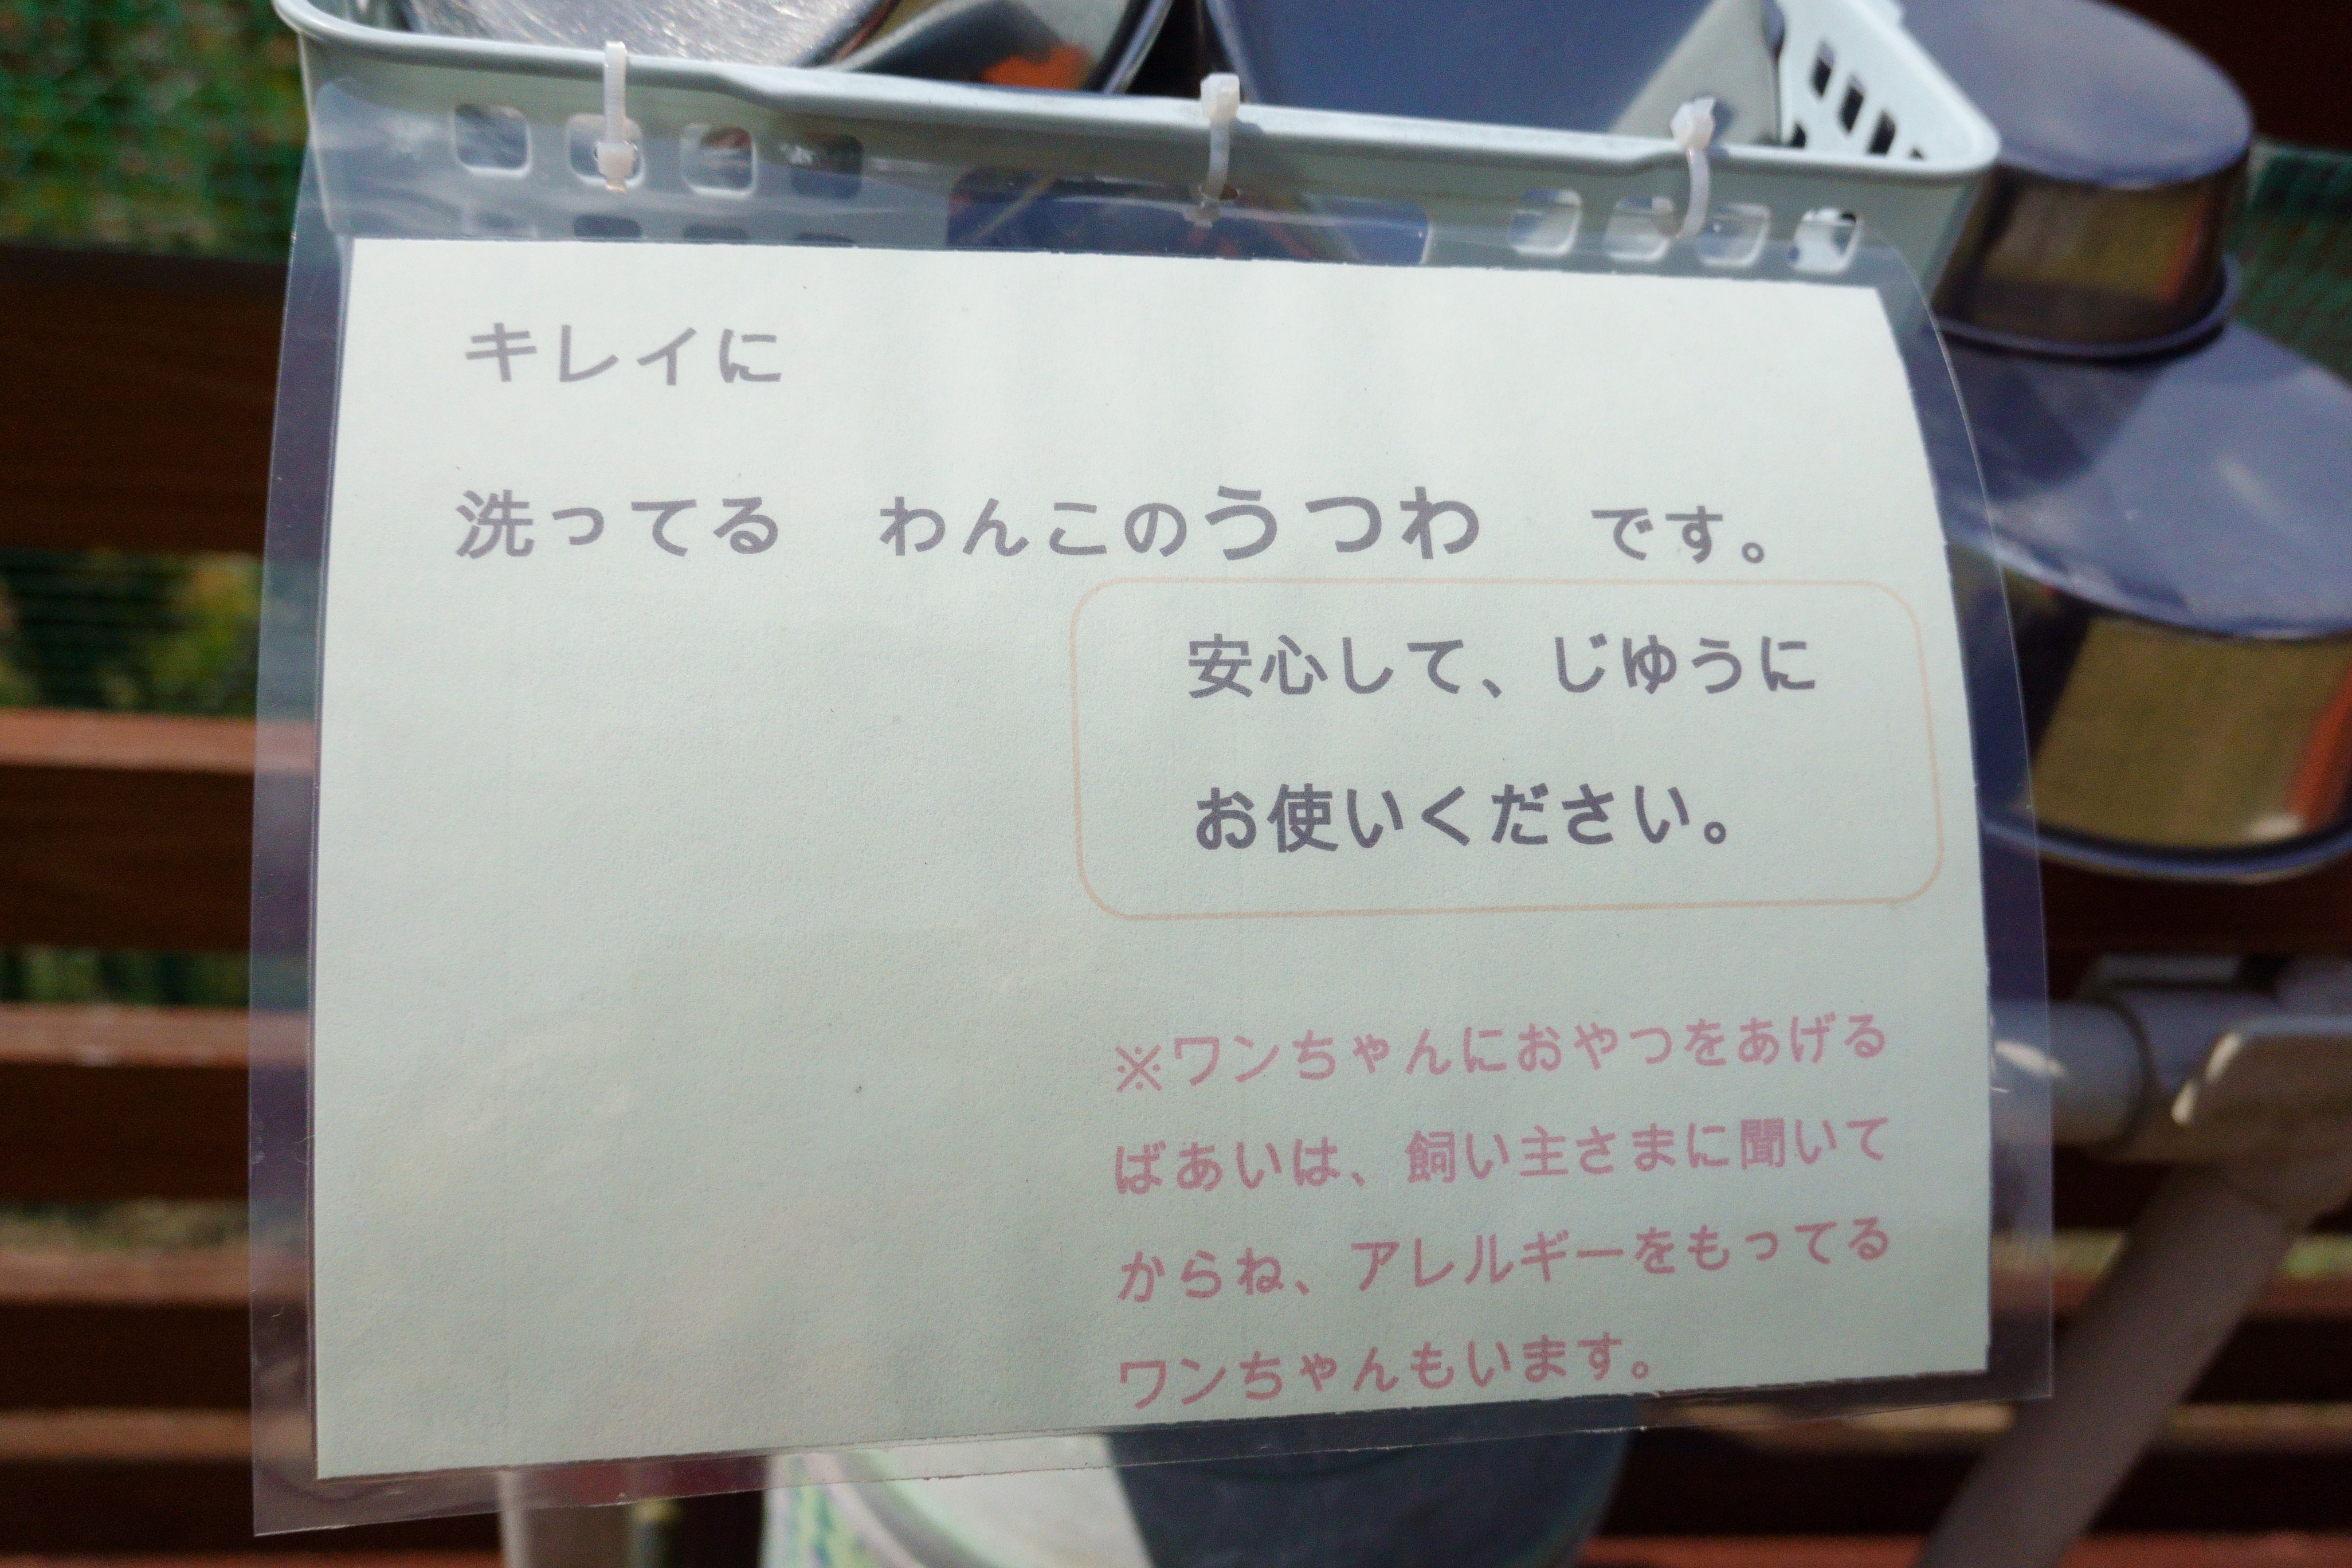 キレイに
洗ってる　わんこのうつわ　です。
安心して、じゆうに
お使いください。
※ワンちゃんにおやつをあげる
ばあいは、飼い主さまに聞いて
からね、アレルギーをもってる
ワンちゃんもいます。